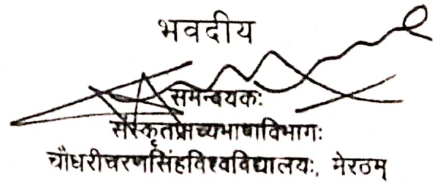 भवदीय
समन्वयकः
संस्कृतप्राच्यभाषाविभागः
चौधरीचरणसिंहविश्वविद्यालयः, मेरठम्